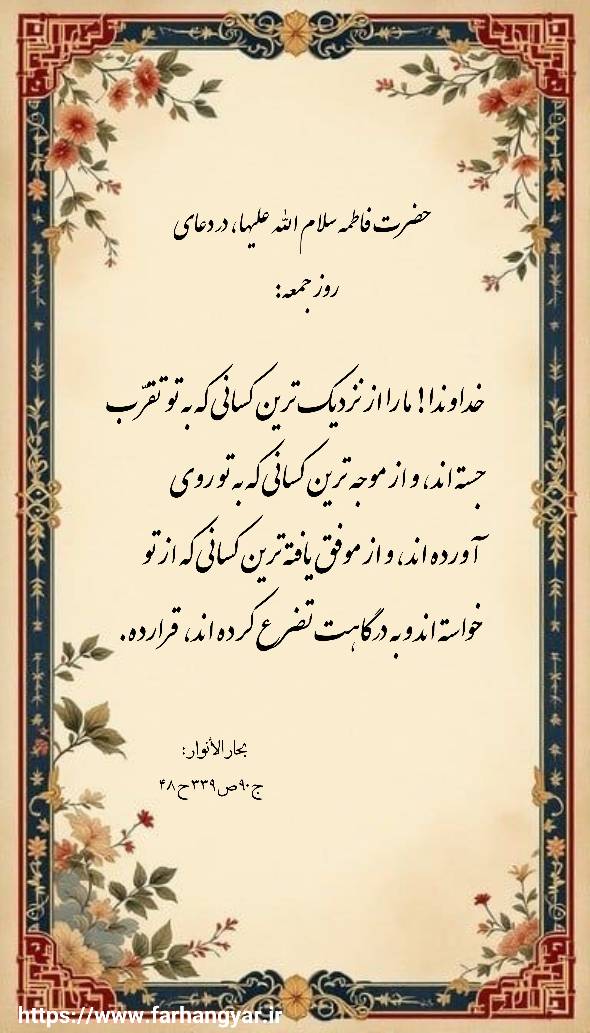 حضرت فاطمه سلام الله علیها، در دعای
روز جمعه:
خداوندا! ما را از نزدیک ترین کسانی که به تو تقرّب
جسته اند، و از موجه ترین کسانی که به تو روی
آورده اند، و از موفق یافته ترین کسانی که از تو
خواسته اند و به درگاهت تضرع کرده اند، قرار ده.
بحار الأنوار:
ج۹۰ص۳۳۹ح۴۸
https://www.farhangyar.ir